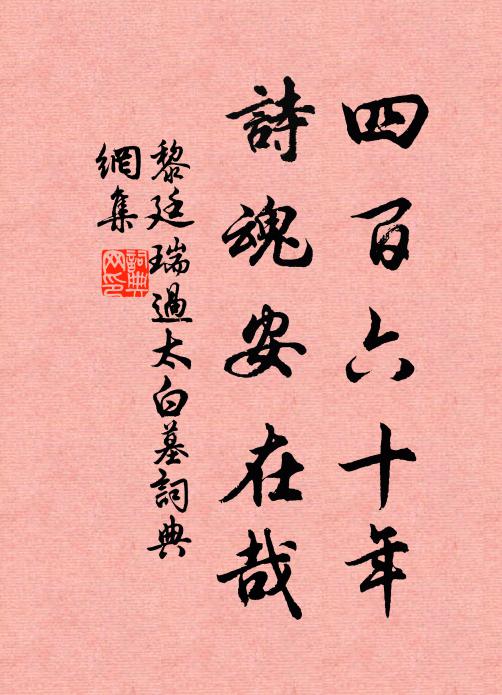 四百六十年
詩魂安在哉
黎廷瑞過太白墓詞典
網集
詞典
网印